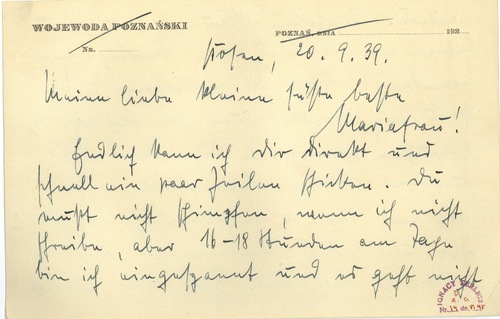 WOJEWODA POZNAŃSKI
POZNAŃ, DNIA 192
Nr.
Posen, 20. 9. 39.
Meine liebe kleine süße beste
Mariafrau!
Endlich kann ich dir direkt und
schnell ein paar Zeilen schicken. Du
mußt nicht schimpfen, wenn ich nicht
schreibe, aber 16-18 Stunden am Tage
bin ich eingespannt und es geht nicht
IGNACY